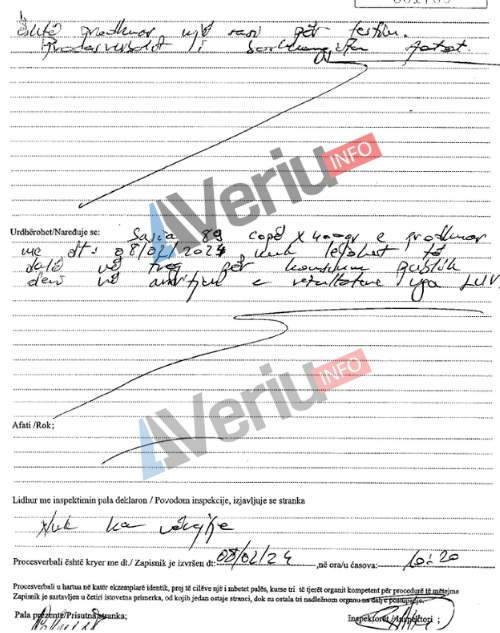 është prodhuar një rast për testim.
Procesverbalit i
Urdhërohet/Naređuje se: Sasia 89 copë x 400gr e prodhuar
me dt: 08/02/2024, nuk lejohet të
dalë në treg për konsum publik
deri në arritjen e rezultateve nga LUV
AVeriu INFO
AVeriu INFO
Afati /Rok;
Lidhur me inspektimin pala deklaron / Povodom inspekcije, izjavljuje se stranka
Nuk ka vërejtje
Procesverbali është kryer me dt./ Zapisnik je izvršen dt: 08/02/24 ,në ora/u časova: 10:20
Procesverbali u hartua në katër ekzemplarë identik, prej të cilëve një i mbetet palës, kurse tri të tjerët organit kompetent për procedurë të mëtejme
Zapisnik je sastavljen u četiri istovetna primerka, od kojih jedan ostaje stranci, dok su ostala tri nadležnom organu na dalje postupanje.
Pala prezente/Prisutna stranka; Inspektori /Inspektori ;